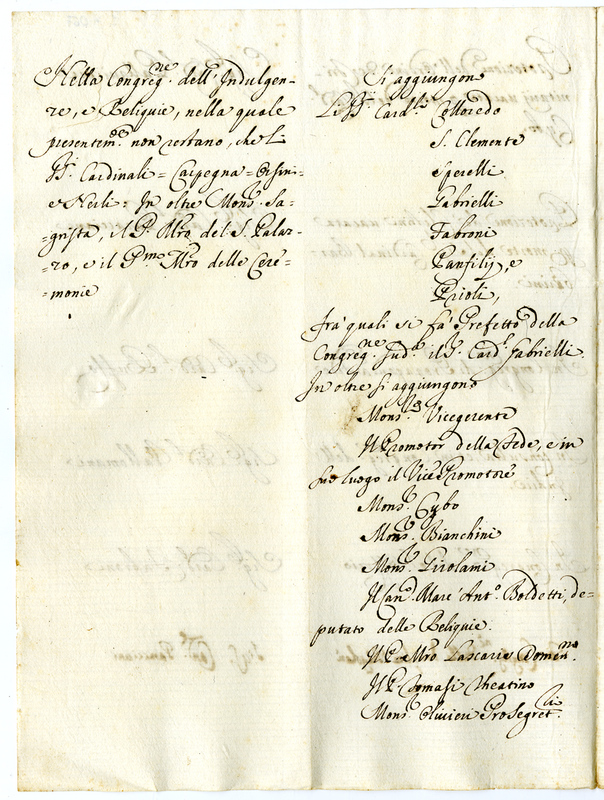 Nella Congreg.ne dell'Indulgen-
ze, e Reliquie, nella quale
presentem.e non restano, che li
SS. Cardinali = Carpegna = Orsini =
e Nerli: In oltre Mons.r Sa-
=grista, il P. Mro del S. Palaz-
=zo, e il P.mo Mro delle Cere=
=monie
Si aggiungono
Li SS.ri Card.li Colloredo
S. Clemente
Sperelli
Gabrielli
Fabroni
Panfilij, e
Prioli,
frà quali si fà Prefetto della
Congreg.ne Sud.a il S.r Card.l Gabrielli.
In oltre si aggiungono
Mons.r Vicegerente
Il Promotor della Fede, e in
suo luogo il Vice Promotore
Mons.r Cybo
Mons.r Bianchini
Mons.r Girolami
Il Can.co Marc'Ant.o Boldetti, de=
putato delle Reliquie.
Il P. Mro Lascaris Domen.no
Il P. Tomasi Theatino
Mons.r Olivieri ProSegret.rio